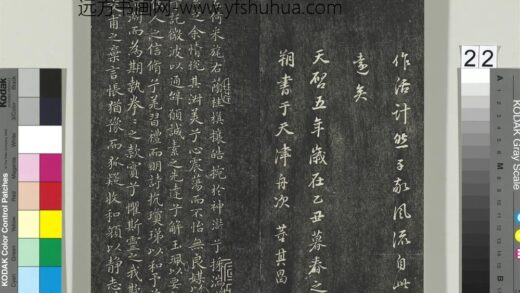 远方书画网 www.yfshuhua.com
作活計然子敬風流自此
遠矣
天啓五年歲在乙丑暮春之
朔書于天津舟次 董其昌
倚采旄右蔭桂旗攘皓捥於神滸兮採湍
之余情悅其淑美兮心震蕩而不怡無良媒
託微波以通辭願誠素之先達兮解玉珮以要
人之信脩兮羌習禮而明詩抗瓊珶以和予兮
淵而為期執拳拳之款實兮懼斯靈之我欺
甫之棄言悵猶豫而狐疑收和顏以靜志
22
KODAK Gray Scale
Kodak
KODAK Color Control Patches